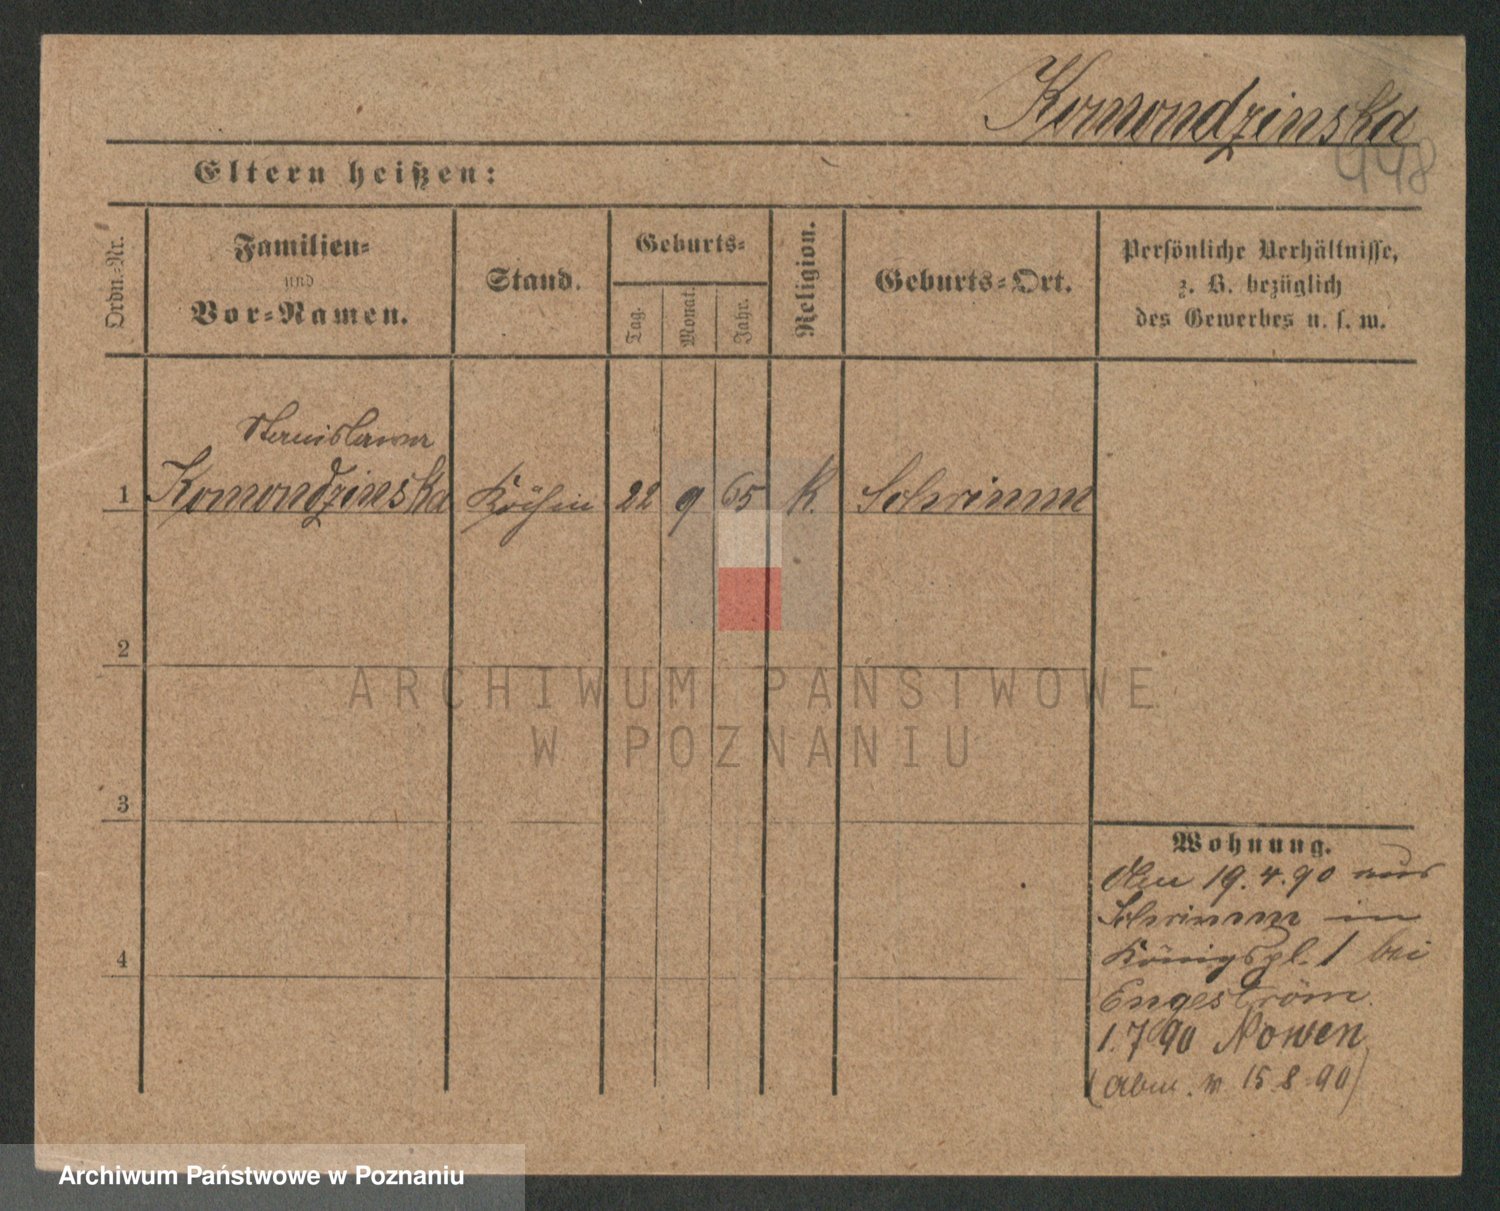 Komondzinska
448
Eltern heißen:
Ordn.-Nr.
Familien-
und
Vor-Namen.
Stand.
Geburts-
Tag.
Monat.
Jahr.
Religion.
Geburts-Ort.
Persönliche Verhältnisse,
z. B. bezüglich
des Gewerbes u. s. w.
Stanislawa
1 Komondzinska Köchin 22 9 65 K. Schrimm
2
3
4
ARCHIWUM PAŃSTWOWE
W POZNANIU
Wohnung.
Den 19.4.90 aus
Schrimm in
Königspl. 1 bei
Engeström.
1.7 90 Nowen
(Abm. v. 15.8.90)
Archiwum Państwowe w Poznaniu